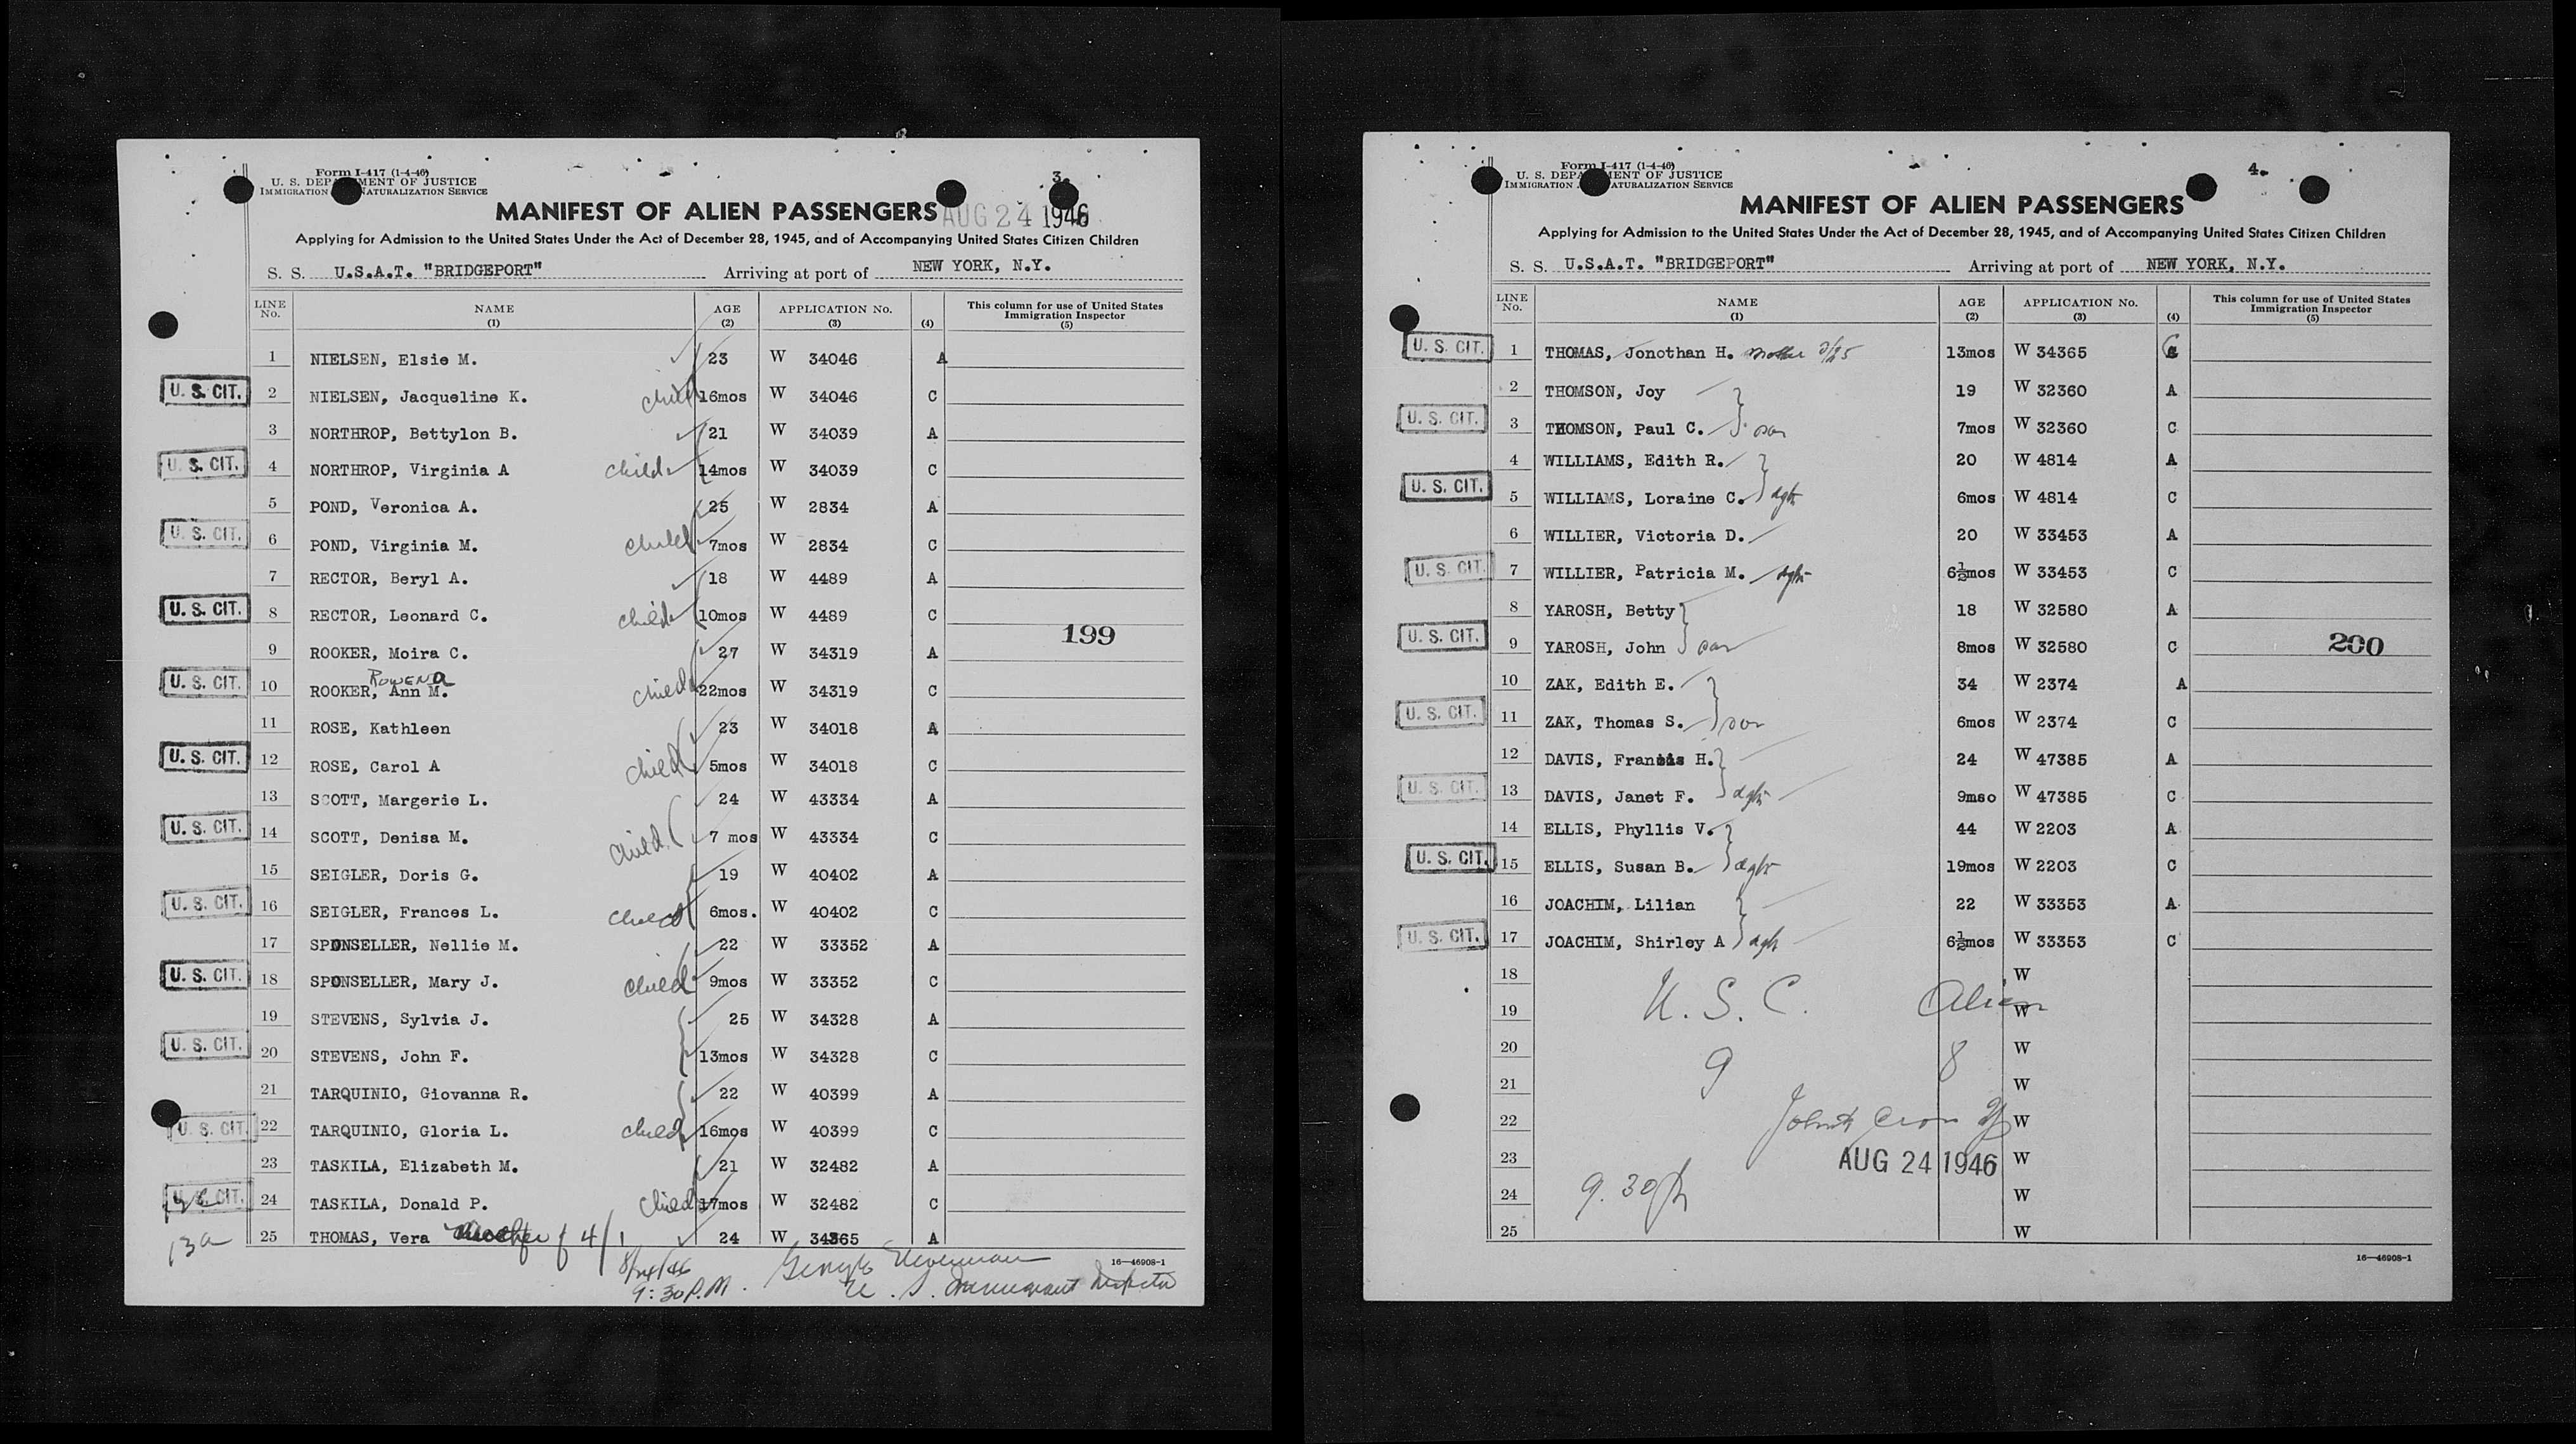 Form I-417 (1-4-46)
U. S. DEP MENT OF JUSTICE
IMMIGRATION NATURALIZATION SERVICE
3.
MANIFEST OF ALIEN PASSENGERS AUG 24 1946
Applying for Admission to the United States Under the Act of December 28, 1945, and of Accompanying United States Citizen Children
S. S. U.S.A.T. "BRIDGEPORT" Arriving at port of NEW YORK, N.Y.
LINE No. NAME (1) AGE (2) APPLICATION No. (3) (4) This column for use of United States Immigration Inspector (5)
1 NIELSEN, Elsie M. 23 W 34046 A
U. S. CIT. 2 NIELSEN, Jacqueline K. child 16mos W 34046 C
3 NORTHROP, Bettylon B. 21 W 34039 A
U. S. CIT. 4 NORTHROP, Virginia A child 14mos W 34039 C
5 POND, Veronica A. 25 W 2834 A
U. S. CIT. 6 POND, Virginia M. child 7mos W 2834 C
7 RECTOR, Beryl A. 18 W 4489 A
U. S. CIT. 8 RECTOR, Leonard C. child 10mos W 4489 C
199
9 ROOKER, Moira C. 27 W 34319 A
Rowena
U. S. CIT. 10 ROOKER, Ann M. child 22mos W 34319 C
11 ROSE, Kathleen 23 W 34018 A
U. S. CIT. 12 ROSE, Carol A child 5mos W 34018 C
13 SCOTT, Margerie L. 24 W 43334 A
U. S. CIT. 14 SCOTT, Denisa M. child 7 mos W 43334 C
15 SEIGLER, Doris G. 19 W 40402 A
U. S. CIT. 16 SEIGLER, Frances L. child 6mos. W 40402 C
17 SPONSELLER, Nellie M. 22 W 33352 A
U. S. CIT. 18 SPONSELLER, Mary J. child 9mos W 33352 C
19 STEVENS, Sylvia J. 25 W 34328 A
U. S. CIT. 20 STEVENS, John F. 13mos W 34328 C
21 TARQUINIO, Giovanna R. 22 W 40399 A
U. S. CIT. 22 TARQUINIO, Gloria L. child 16mos W 40399 C
23 TASKILA, Elizabeth M. 21 W 32482 A
U. S. CIT. 24 TASKILA, Donald P. child 17mos W 32482 C
13a 25 THOMAS, Vera mother of 4/1 24 W 34365 A
8/24/46
9:30 P.M.
U. S. Immigrant Inspector
16—46908-1
Form I-417 (1-4-46)
U. S. DEPA MENT OF JUSTICE
IMMIGRATION ATURALIZATION SERVICE
4.
MANIFEST OF ALIEN PASSENGERS
Applying for Admission to the United States Under the Act of December 28, 1945, and of Accompanying United States Citizen Children
S. S. U.S.A.T. "BRIDGEPORT" Arriving at port of NEW YORK, N.Y.
LINE No. NAME (1) AGE (2) APPLICATION No. (3) (4) This column for use of United States Immigration Inspector (5)
U. S. CIT. 1 THOMAS, Jonothan H. mother 3/25 13mos W 34365 C
2 THOMSON, Joy 19 W 32360 A
U. S. CIT. 3 THOMSON, Paul C. son 7mos W 32360 C
4 WILLIAMS, Edith R. 20 W 4814 A
U. S. CIT. 5 WILLIAMS, Loraine C. dghtr 6mos W 4814 C
6 WILLIER, Victoria D. 20 W 33453 A
U. S. CIT. 7 WILLIER, Patricia M. dghtr 6½mos W 33453 C
8 YAROSH, Betty 18 W 32580 A
U. S. CIT. 9 YAROSH, John son 8mos W 32580 C
200
10 ZAK, Edith E. 34 W 2374 A
U. S. CIT. 11 ZAK, Thomas S. son 6mos W 2374 C
12 DAVIS, Francis H. 24 W 47385 A
U. S. CIT. 13 DAVIS, Janet F. dghtr 9mso W 47385 C
14 ELLIS, Phyllis V. 44 W 2203 A
U. S. CIT. 15 ELLIS, Susan B. dghtr 19mos W 2203 C
16 JOACHIM, Lilian 22 W 33353 A
U. S. CIT. 17 JOACHIM, Shirley A dgh 6½mos W 33353 C
18 W
19 U. S. C. Alien W
20 9 8 W
21 W
22 W
23 AUG 24 1946 W
24 9.30 W
25 W
16—46908-1